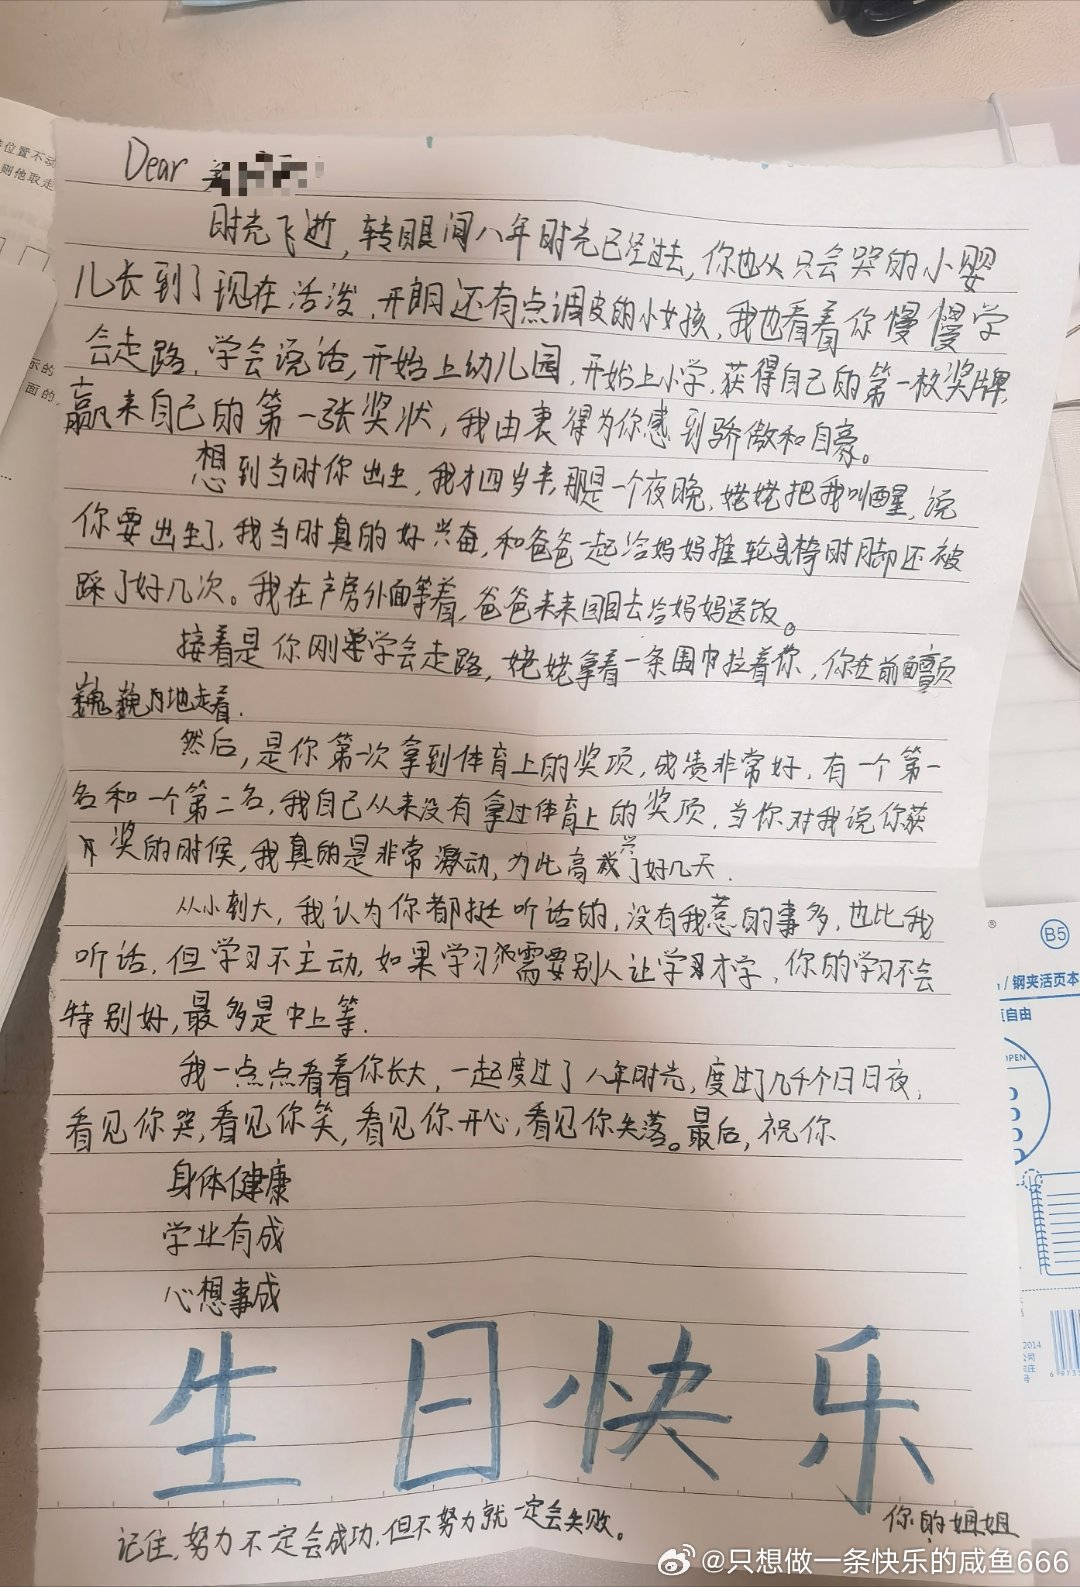 Dear 姜
时光飞逝，转眼间八年时光已经过去，你也从只会哭的小婴
儿长到了现在活泼，开朗还有点调皮的小女孩，我也看着你慢慢学
会走路，学会说话，开始上幼儿园，开始上小学，获得自己的第一枚奖牌，
赢来自己的第一张奖状，我由衷得为你感到骄傲和自豪。
想到当时你出生，我才四岁半，那是一个夜晚，姥姥把我叫醒，说
你要出生了，我当时真的好兴奋，和爸爸一起给妈妈推轮椅时脚还被
踩了好几次。我在产房外面等着，爸爸来来回回去给妈妈送饭。
接着是你刚学会走路，姥姥拿着一条围巾拉着你，你在前面颤颤
巍巍地走着.
然后，是你第一次拿到体育上的奖项，成绩非常好，有一个第一
名和一个第二名，我自己从来没有拿过体育上的奖项，当你对我说你获
奖的时候，我真的是非常激动，为此高兴了好几天.
从小到大，我认为你都挺听话的，没有我惹的事多，也比我
听话，但学习不主动，如果学习需要别人让学习才学，你的学习不会
特别好，最多是中上等.
我一点点看着你长大，一起度过了八年时光，度过了几千个日日夜，
看见你哭，看见你笑，看见你开心，看见你失落。最后，祝你
身体健康
学业有成
心想事成
生日快乐
你的姐姐
记住，努力不定会成功，但不努力就一定会失败。
位置不动
则他取走
示的
面的
®
B5
/ 钢夹活页本
自由
OPEN
2014
公司
@只想做一条快乐的咸鱼666